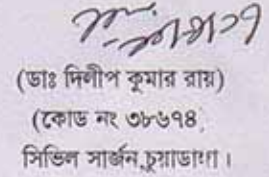 (ডাঃ দিলীপ কুমার রায়)
(কোড নং ৩৮৬৭৪)
সিভিল সার্জন,চুয়াডাংগা।